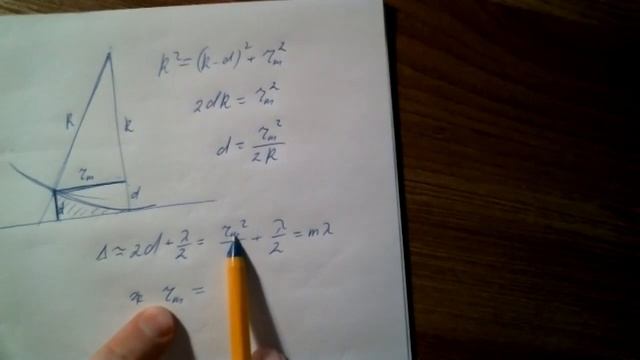 R² = (R-d)² + r_m²
2dR = r_m²
d = r_m² / 2R
R
R
r_m
d
d
Δ ≃ 2d + λ/2 = r_m² + λ/2 = mλ
r_m =